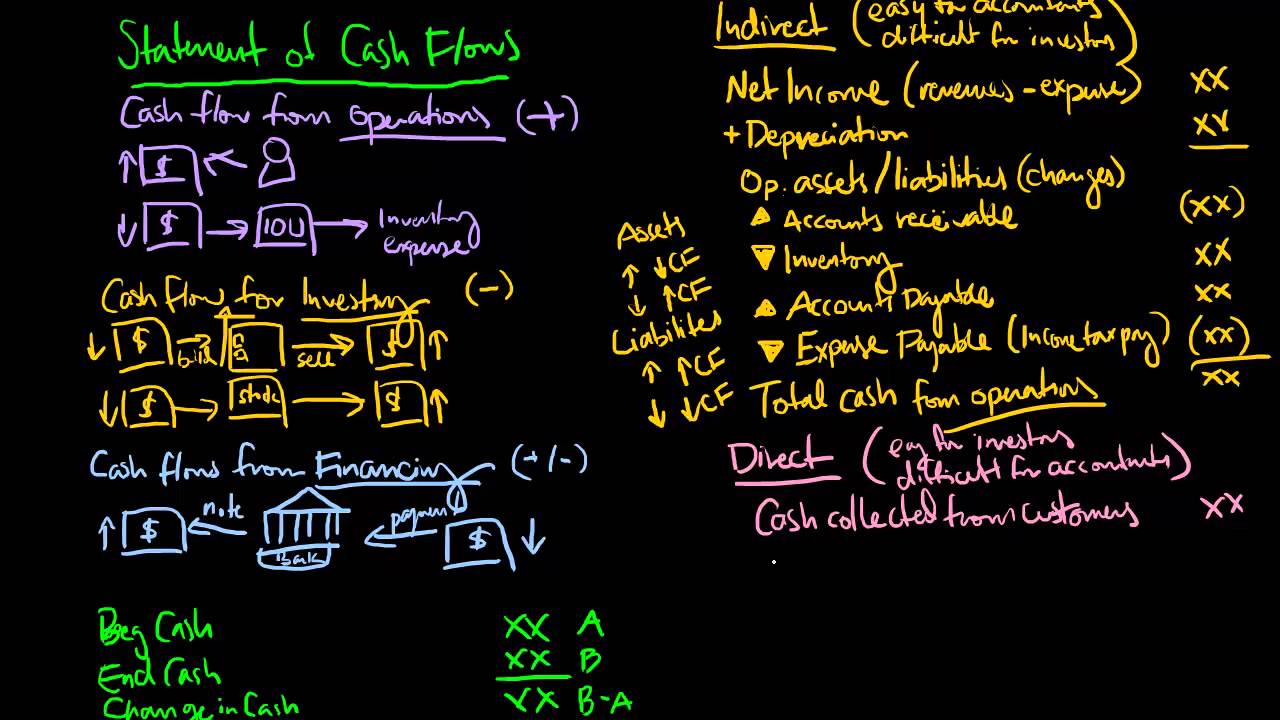 Statement of Cash Flows
Cash flow from operations (+)
↑ $ ←
↓ $ → IOU → Inventory
expense
Cash flow for Investing (-)
↓ $ → build → sell $ ↑
↓ $ → stock → $ ↑
Cash flows from Financing (+/-)
↑ $ ← note Bank ← payment $ ↓
Beg Cash XX A
End Cash XX B
Change in Cash XX B-A
Assets
↑ ↓CF
↓ ↑CF
Liabilites
↑ ↑CF
↓ ↓CF
Indirect (easy for accountants
difficult for investors)
Net Income (revenues - expense) XX
+ Depreciation XX
Op. assets/liabilities (changes)
▲ Accounts receivable (XX)
▼ Inventory XX
▲ Accounts Payable XX
▼ Expense Payable (Income tax pay) (XX)
Total cash from operations XX
Direct (easy for investors
difficult for accountants)
Cash collected from customers XX